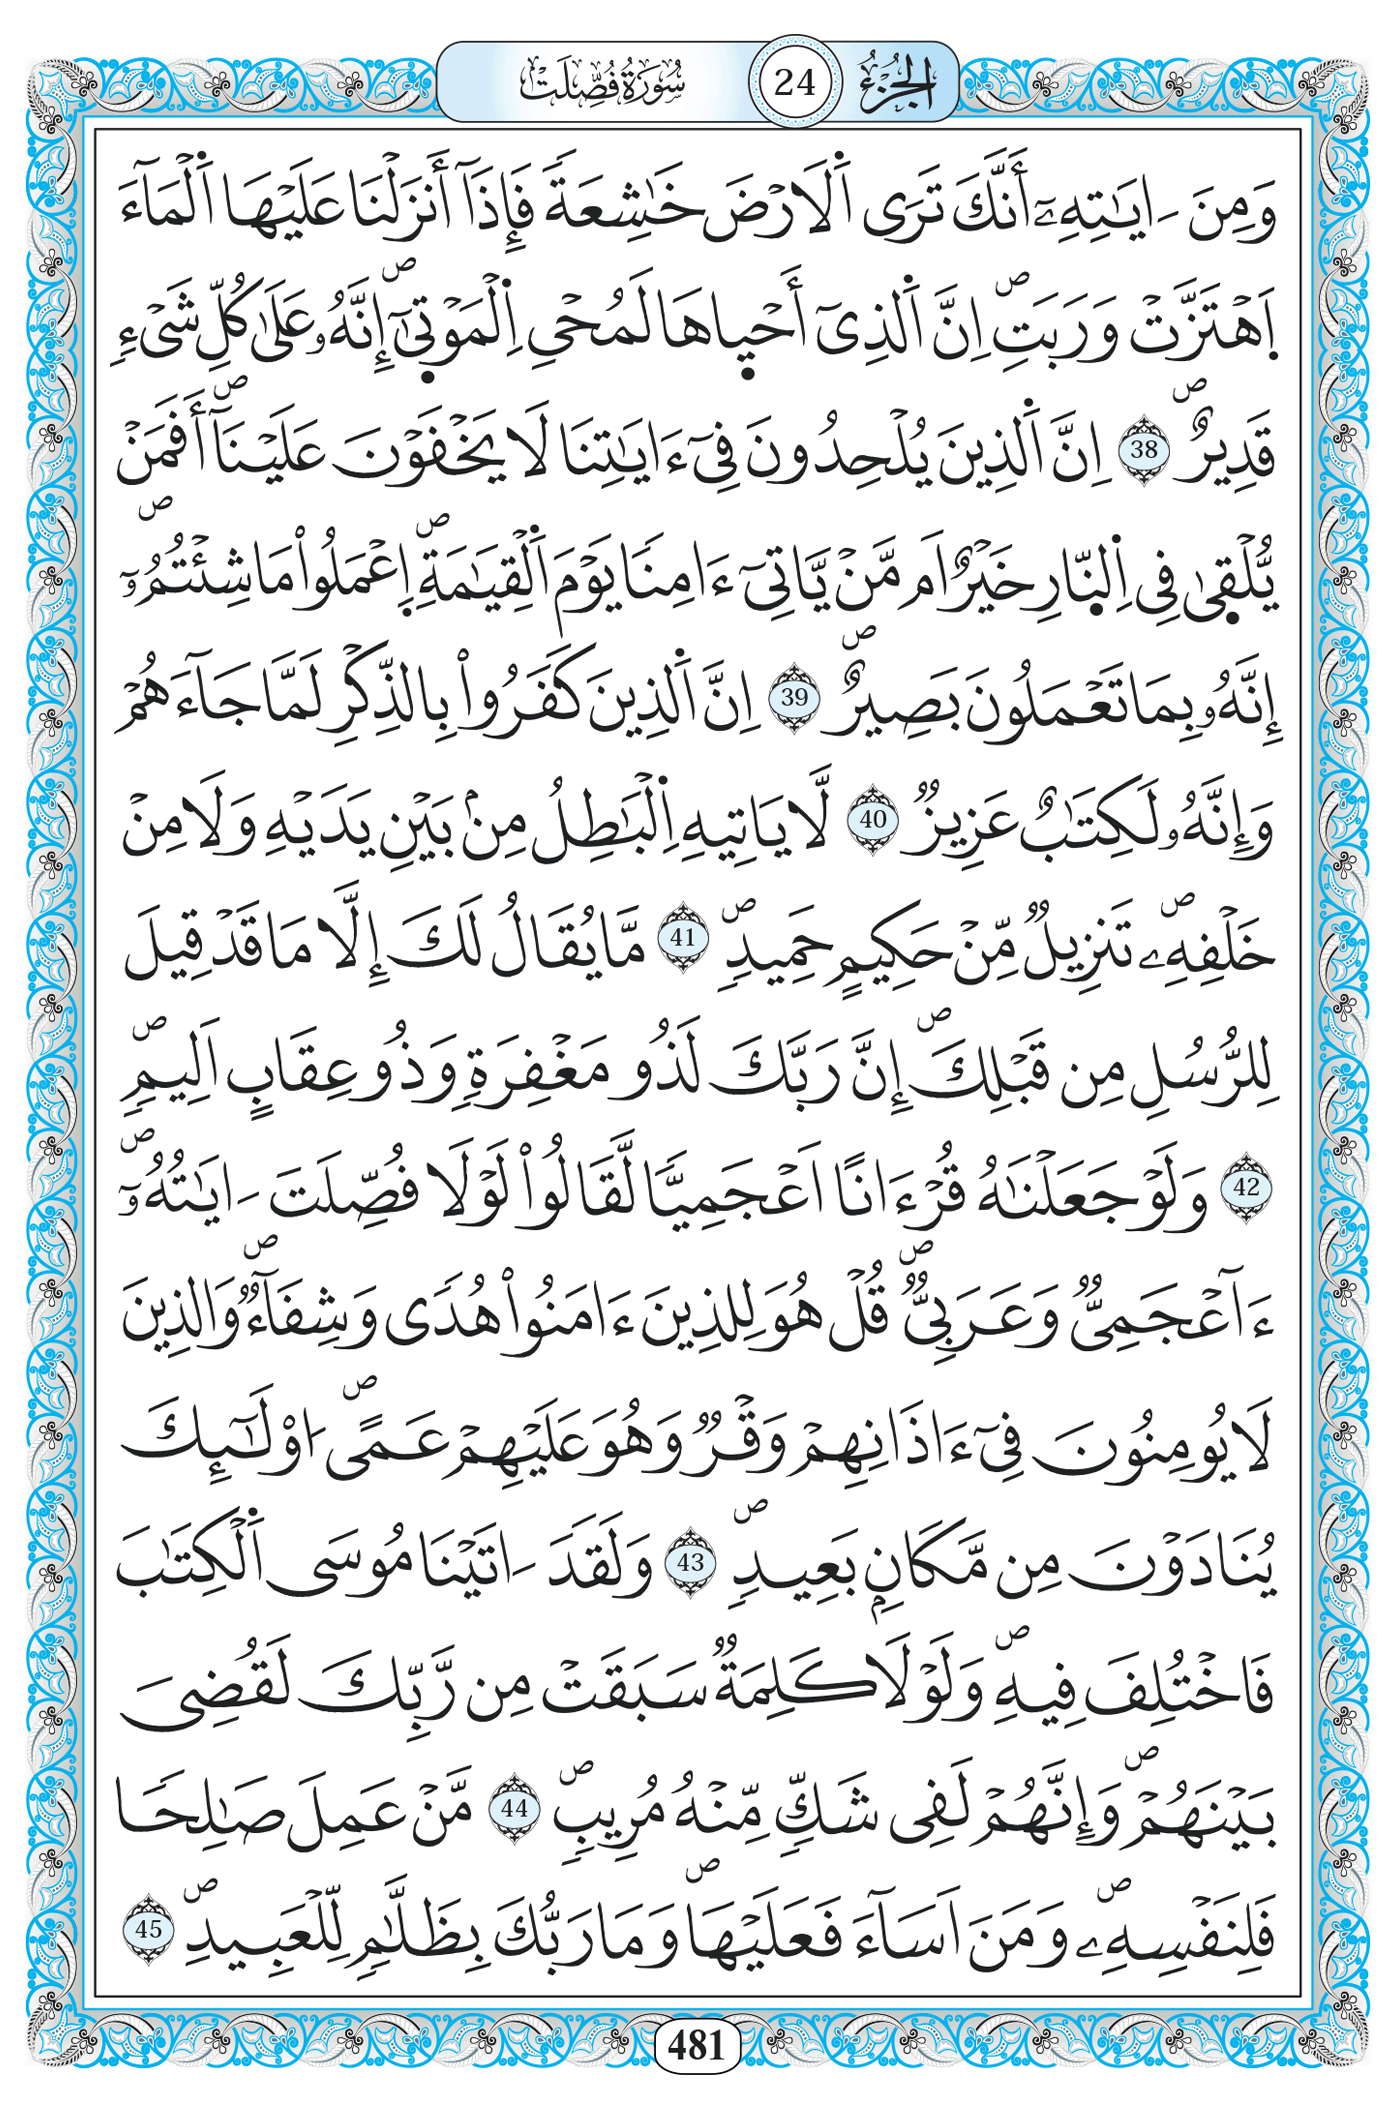 سُورَةُ فُصِّلَتْ 24 الجُزْءُ
وَمِنَ اٰيَٰتِهِۦٓ أَنَّكَ تَرَى اَ۬لَارْضَ خَٰشِعَةٗ فَإِذَآ أَنزَلْنَا عَلَيْهَا اَ۬لْمَآءَ
اَ۪هْتَزَّتْ وَرَبَتِۖ اِنَّ اَ۬لذِےٓ أَحْي۪اهَا لَمُحْيِ اِ۬لْمَوْت۪ىٰٓۖ إِنَّهُۥ عَلَىٰ كُلِّ شَےْءٖ
قَدِيرٌۖ 38 اِنَّ اَ۬لذِينَ يُلْحِدُونَ فِےٓ ءَايَٰتِنَا لَا يَخْفَوْنَ عَلَيْنَآۖ أَفَمَنْ
يُّلْق۪ىٰ فِے اِ۬لنّ۪ارِ خَيْرٌ اَم مَّنْ يَّاتِےٓ ءَامِناٗ يَوْمَ اَ۬لْقِيَٰمَةِۖ اِ۪عْمَلُواْ مَا شِئْتُمُۥٓۖ
إِنَّهُۥ بِمَا تَعْمَلُونَ بَصِيرٌۖ 39 اِنَّ اَ۬لذِينَ كَفَرُواْ بِالذِّكْرِ لَمَّا جَآءَهُمْ
وَإِنَّهُۥ لَكِتَٰبٌ عَزِيزٞ 40 لَّا يَاتِيهِ اِ۬لْبَٰطِلُ مِنۢ بَيْنِ يَدَيْهِ وَلَا مِنْ
خَلْفِهِۦۖ تَنزِيلٞ مِّنْ حَكِيمٍ حَمِيدٖۖ 41 مَّا يُقَالُ لَكَ إِلَّا مَا قَدْ قِيلَ
لِلرُّسُلِ مِن قَبْلِكَۖ إِنَّ رَبَّكَ لَذُو مَغْفِرَةٖ وَذُو عِقَابٍ اَلِيمٖۖ
42 وَلَوْ جَعَلْنَٰهُ قُرْءَاناً اَعْجَمِيّاٗ لَّقَالُواْ لَوْلَا فُصِّلَتَ اٰيَٰتُهُۥٓۖ
ءَآعْجَمِيّٞ وَعَرَبِيّٞۖ قُلْ هُوَ لِلذِينَ ءَامَنُواْ هُدٗى وَشِفَآءٞۖ وَالذِينَ
لَا يُومِنُونَ فِےٓ ءَاذَانِهِمْ وَقْرٞ وَهُوَ عَلَيْهِمْ عَمًىۖ ا۟وْلَٰٓئِكَ
يُنَادَوْنَ مِن مَّكَانِۢ بَعِيدٖۖ 43 وَلَقَدَ اٰتَيْنَا مُوسَى اَ۬لْكِتَٰبَ
فَاخْتُلِفَ فِيهِۖ وَلَوْلَا كَلِمَةٞ سَبَقَتْ مِن رَّبِّكَ لَقُضِيَ
بَيْنَهُمْۖ وَإِنَّهُمْ لَفِے شَكّٖ مِّنْهُ مُرِيبٖۖ 44 مَّنْ عَمِلَ صَٰلِحاٗ
فَلِنَفْسِهِۦۖ وَمَنَ اَسَآءَ فَعَلَيْهَاۖ وَمَا رَبُّكَ بِظَلَّٰمٖ لِّلْعَبِيدِۖ 45
481